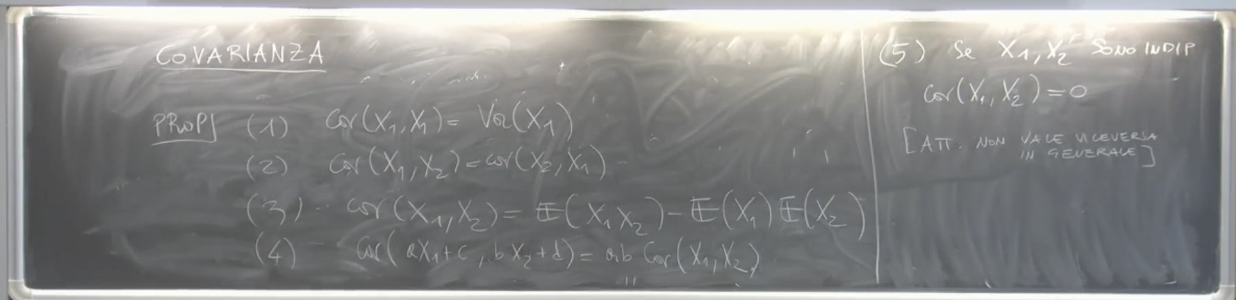 COVARIANZA
PROP] (1) Cov(X₁,X₁) = Var(X₁)
(2) Cov(X₁,X₂) = cov(X₂,X₁)
(3) cov(X₁,X₂) = 𝔼(X₁X₂) - 𝔼(X₁)𝔼(X₂)
(4) Cov(aX₁+c, bX₂+d) = ab Cov(X₁,X₂)
(5) Se X₁,X₂ SONO INDIP
Cov(X₁,X₂) = 0
[ATT. NON VALE VICEVERSA
IN GENERALE]